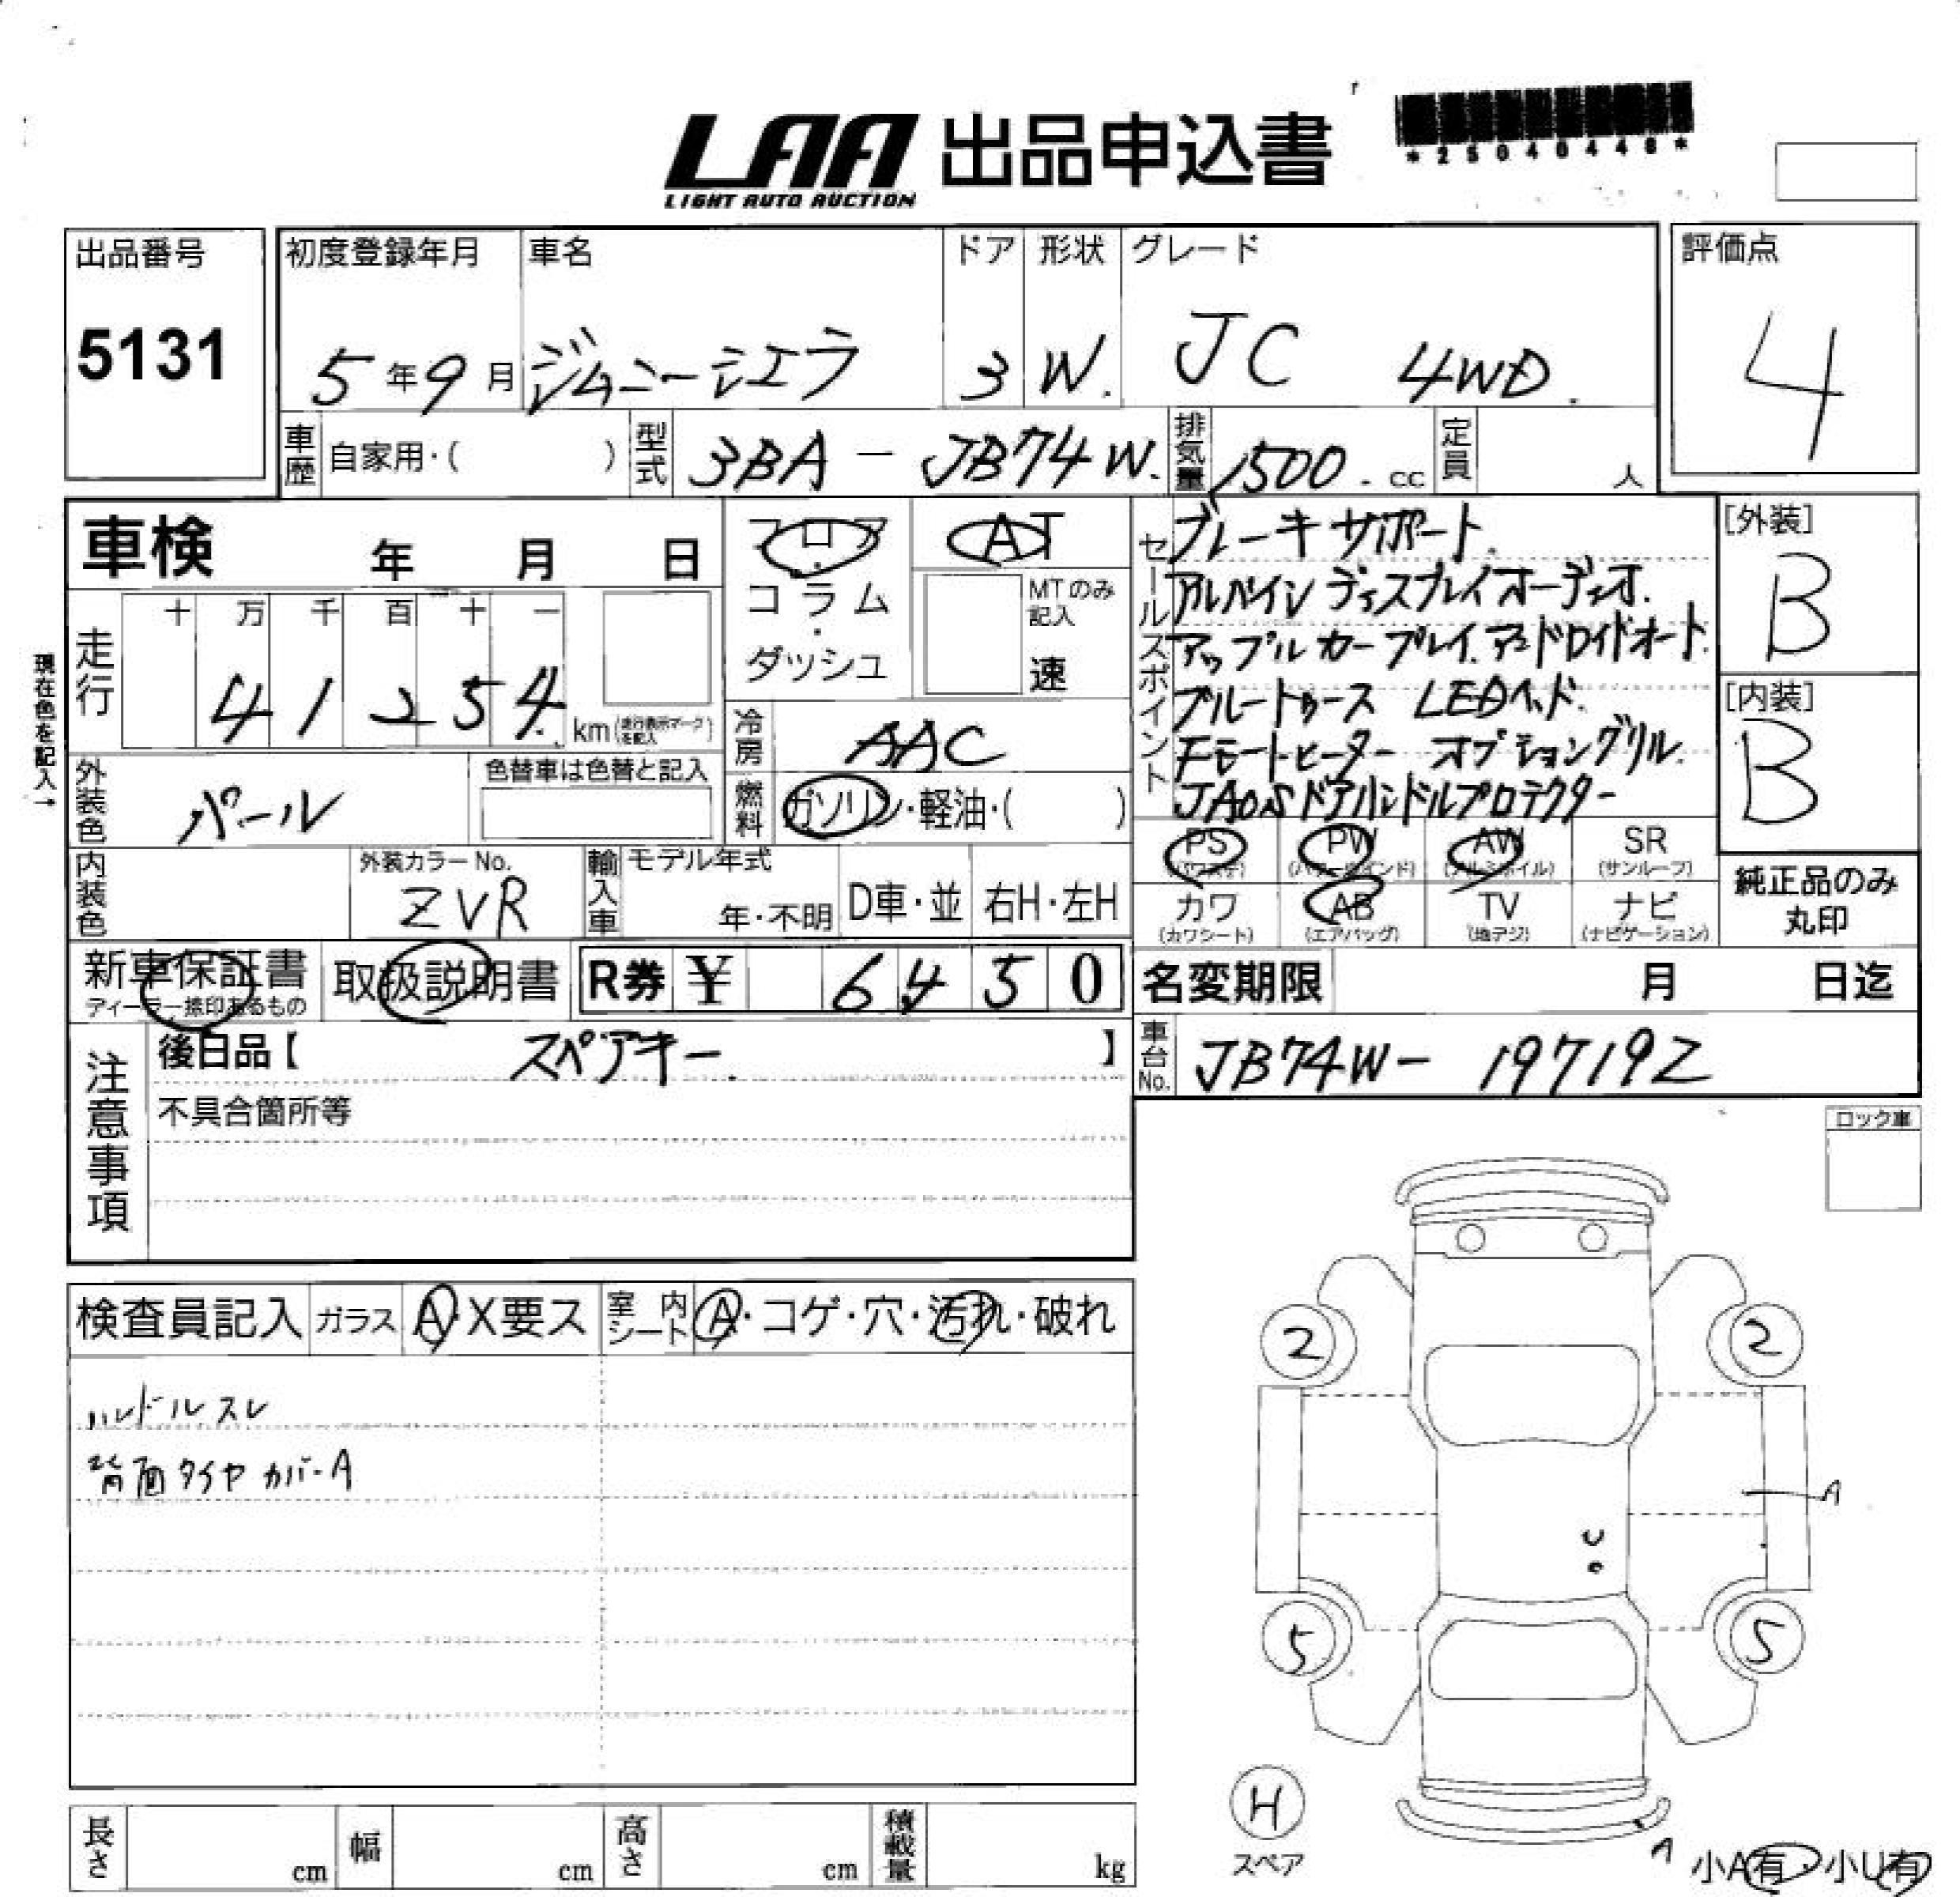 LAA 出品申込書
LIGHT AUTO AUCTION
*25040448*
出品番号 初度登録年月 車名 ドア 形状 グレード 評価点
5131 5年9月 ジムニーシエラ 3 W. JC 4WD. 4
車歴 自家用・( ) 型式 3BA - JB74W. 排気量 1500. cc 定員 人
車検 年 月 日
フロア・コラム・ダッシュ
AT
MTのみ記入
速
現在色を記入→
走行 十 万 千 百 十 一
41254 km(走行表示マークを記入)
冷房 AAC
燃料 ガソリン・軽油・( )
外装色 パール 色替車は色替と記入
内装色 外装カラーNo. ZVR
輸入車 モデル年式 年・不明 D車・並 右H・左H
セールスポイント
ブレーキサポート.
アルパインディスプレイオーディオ.
アップルカープレイ.アンドロイドオート.
ブルートゥース LEDヘッド.
シートヒーター オプショングリル.
JAOSドアハンドルプロテクター
[外装]
B
[内装]
B
PS PW AW SR
(パワステ) (パワーウインド) (アルミホイル) (サンルーフ)
カワ AB TV ナビ
(カワシート) (エアバッグ) (地デジ) (ナビゲーション)
純正品のみ
丸印
新車保証書 取扱説明書 R券 ¥ 6450
ディーラー捺印あるもの
名変期限 月 日迄
車台No. JB74W- 197192
注意事項
後日品【 スペアキー. 】
不具合箇所等
ロック車
検査員記入 ガラス A・X要ス 室内シート A・コゲ・穴・汚れ・破れ
ハンドルスレ
背面タイヤカバーA
2 2
A
U
5 5
H
スペア
A
小A有・小U有
長さ cm 幅 cm 高さ cm 積載量 kg